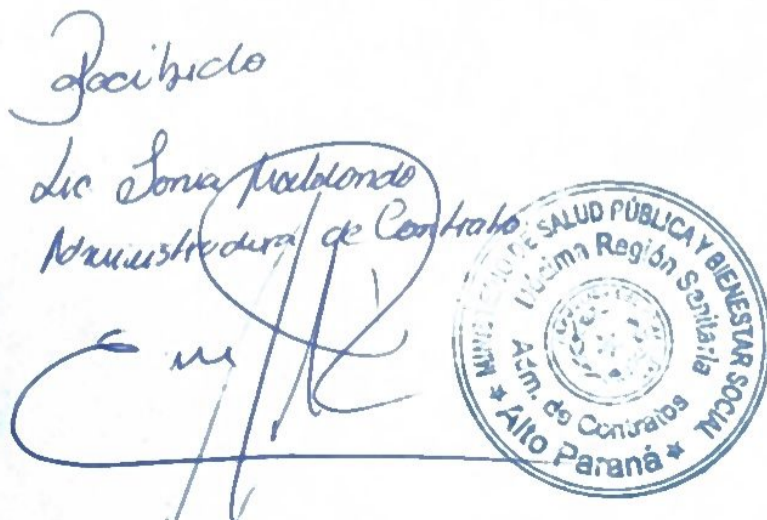 Recibido
Lic Sonia Maldonado
Administradora de Contrato
MINISTERIO DE SALUD PÚBLICA Y BIENESTAR SOCIAL
Décima Región Sanitaria
Adm. de Contratos
* Alto Paraná *